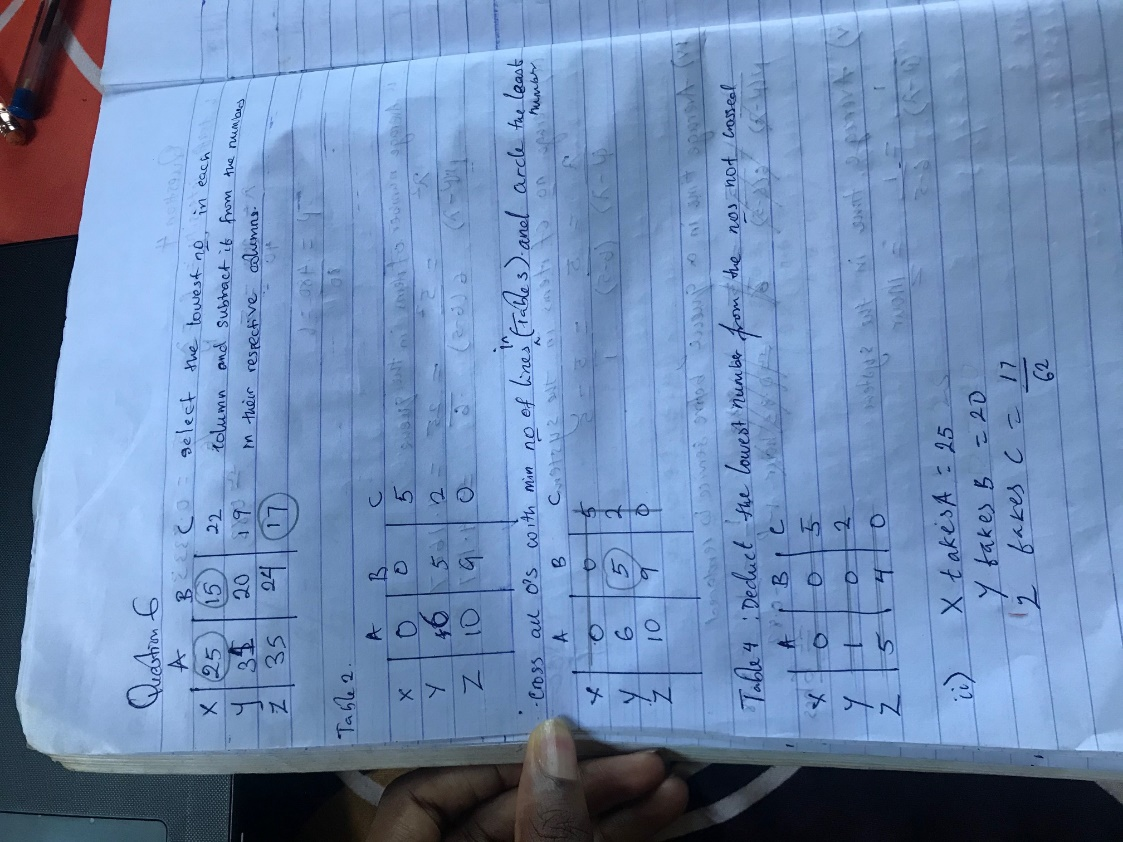 Question 6
A B C = select the lowest no. in each
X 25 15 22 column and subtract it from the numbers
Y 31 20 19 in their respective columns.
Z 35 24 17
Table 2.
A B C
X 0 0 5
Y 6 5 2
Z 10 9 0
∴ Cross all 0's with min no of lines in (Tables) and circle the least number
A B C
X 0 0 5
Y 6 5 2
Z 10 9 0
Table 4 : Deduct the lowest number from the nos not crossed
A B C
X 0 0 5
Y 1 0 2
Z 5 4 0
ii) X takes A = 25
Y takes B = 20
Z takes C = 17
62